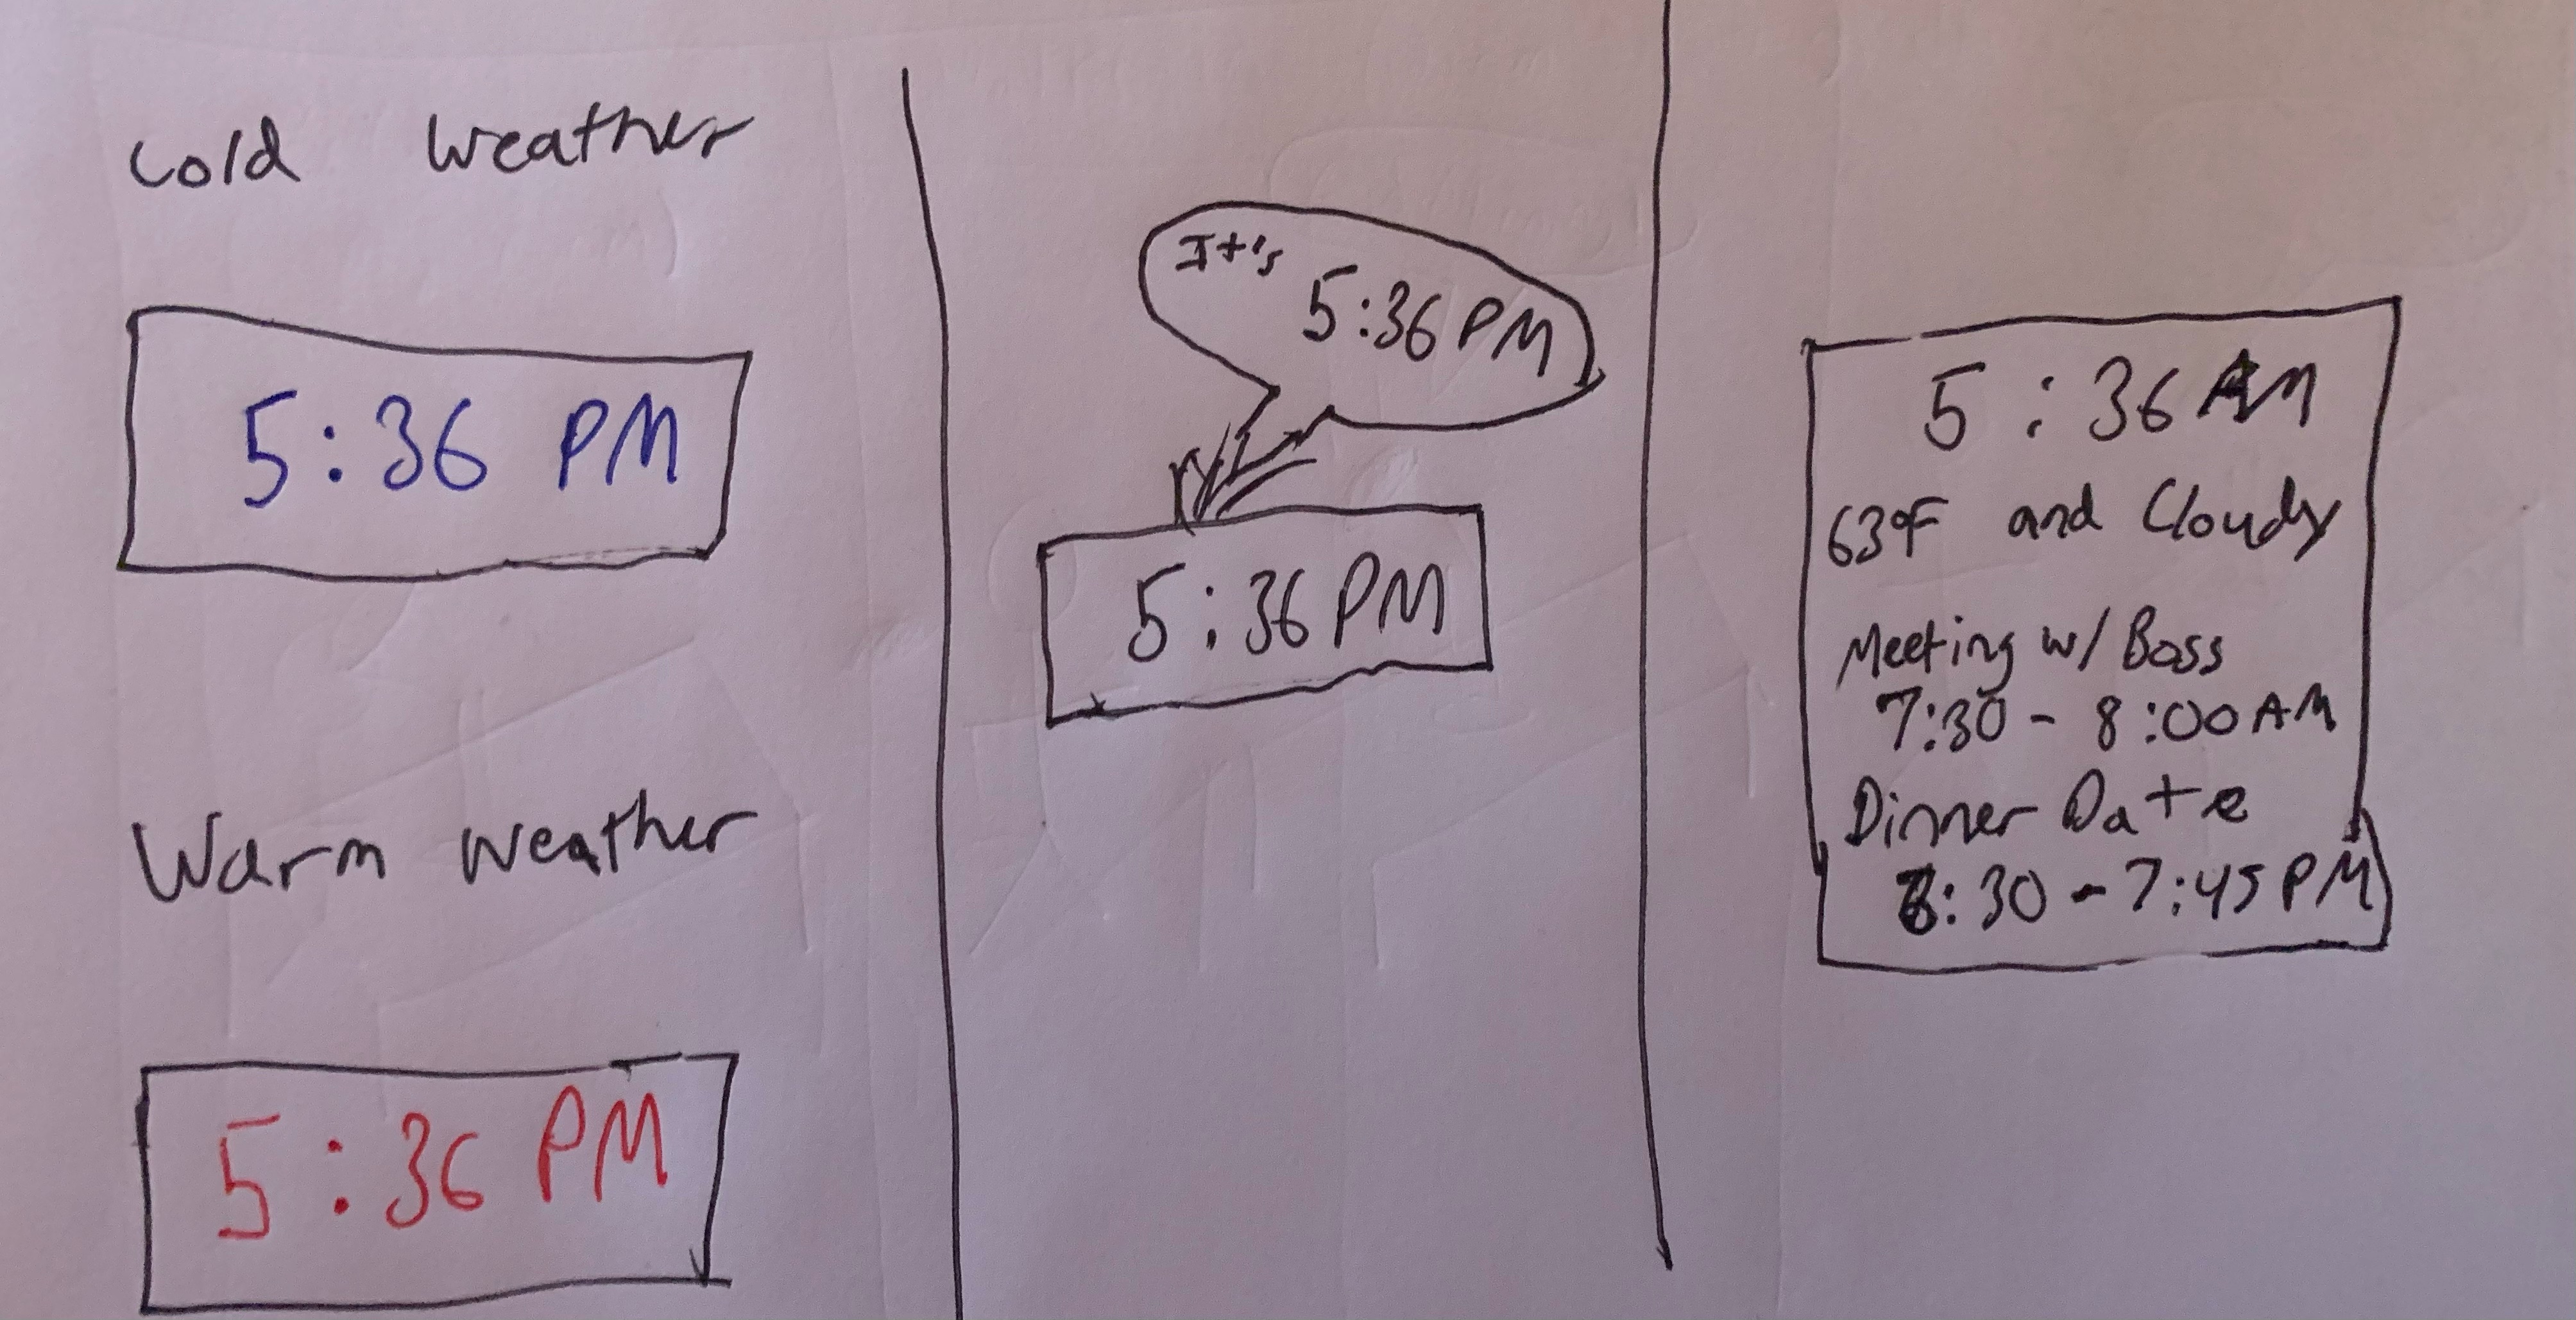 Cold Weather
5:36 PM
Warm Weather
5:36 PM
It's 5:36 PM
5:36 PM
5:36 AM
63°F and Cloudy
Meeting w/ Boss
7:30 - 8:00 AM
Dinner Date
6:30 - 7:45 PM